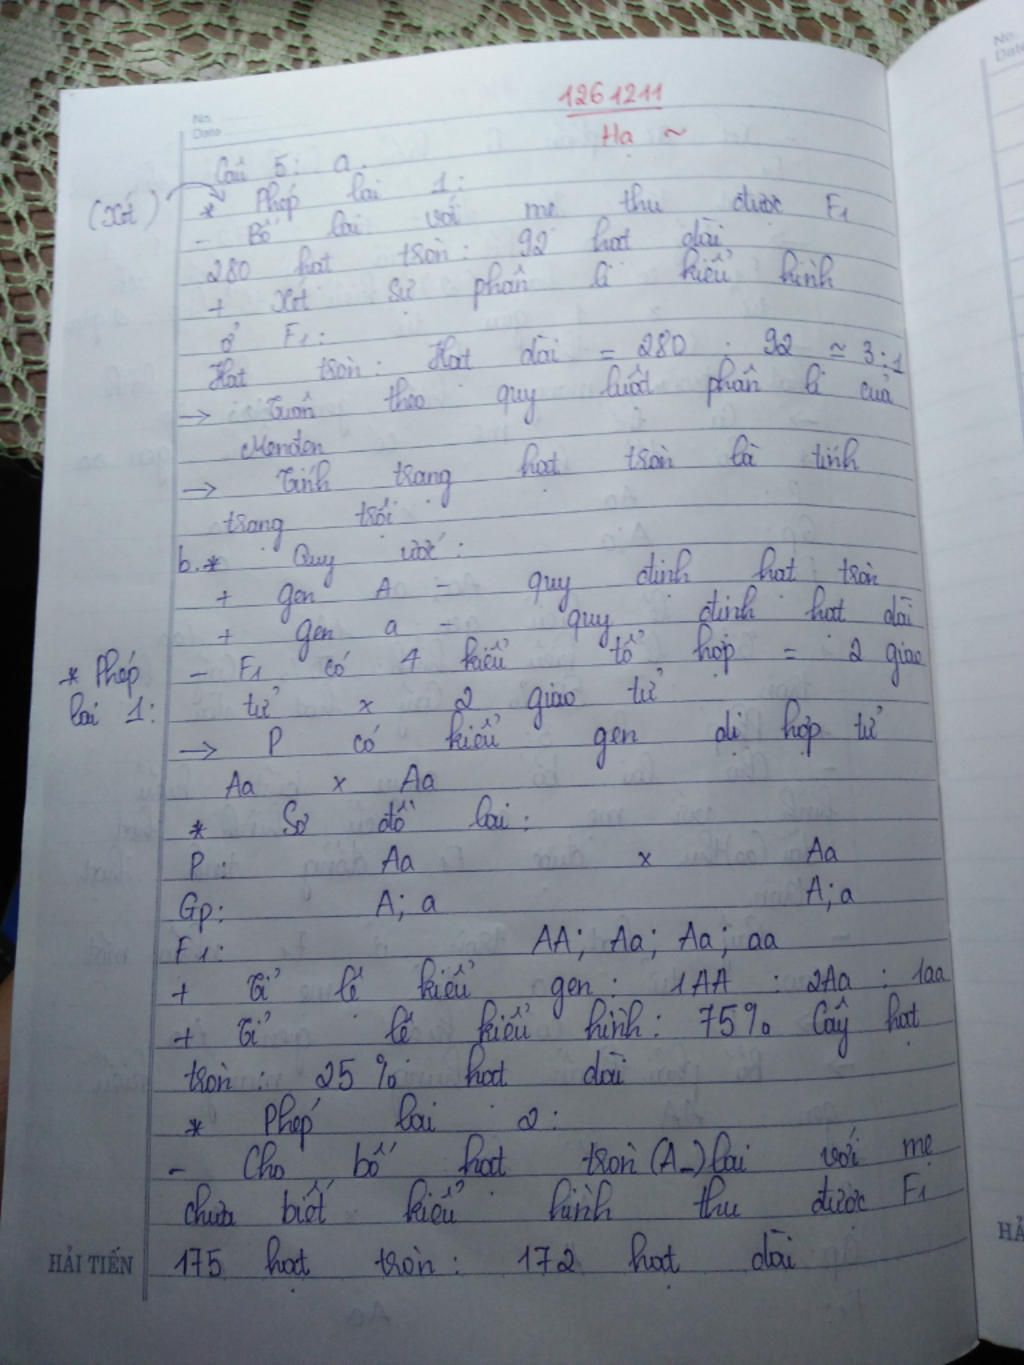 No.
Date
1261211
Hạ ~
Câu 5: a.
(Xét) * Phép lai 1:
- Bố lai với mẹ thu được F1
280 hạt tròn: 92 hạt dài
+ Xét sự phân li kiểu hình
ở F1:
Hạt tròn: Hạt dài = 280 : 92 ≈ 3:1
→ Tuân theo quy luật phân li của
Menđen
→ Tính trạng hạt tròn là tính
trạng trội
b. * Quy ước:
+ gen A - quy định hạt tròn
+ gen a - quy định hạt dài
* Phép lai 1:
- F1 có 4 kiểu tổ hợp = 2 giao
tử x 2 giao tử
→ P có kiểu gen dị hợp tử
Aa x Aa
* Sơ đồ lai:
P: Aa x Aa
Gp: A; a A; a
F1: AA; Aa; Aa; aa
+ Tỉ lệ kiểu gen: 1AA : 2Aa : 1aa
+ Tỉ lệ kiểu hình: 75% Cây hạt
tròn: 25% hạt dài
* Phép lai 2:
- Cho bố hạt tròn (A_) lai với mẹ
chưa biết kiểu hình thu được F1
175 hạt tròn: 172 hạt dài
HẢI TIẾN
No.
Date